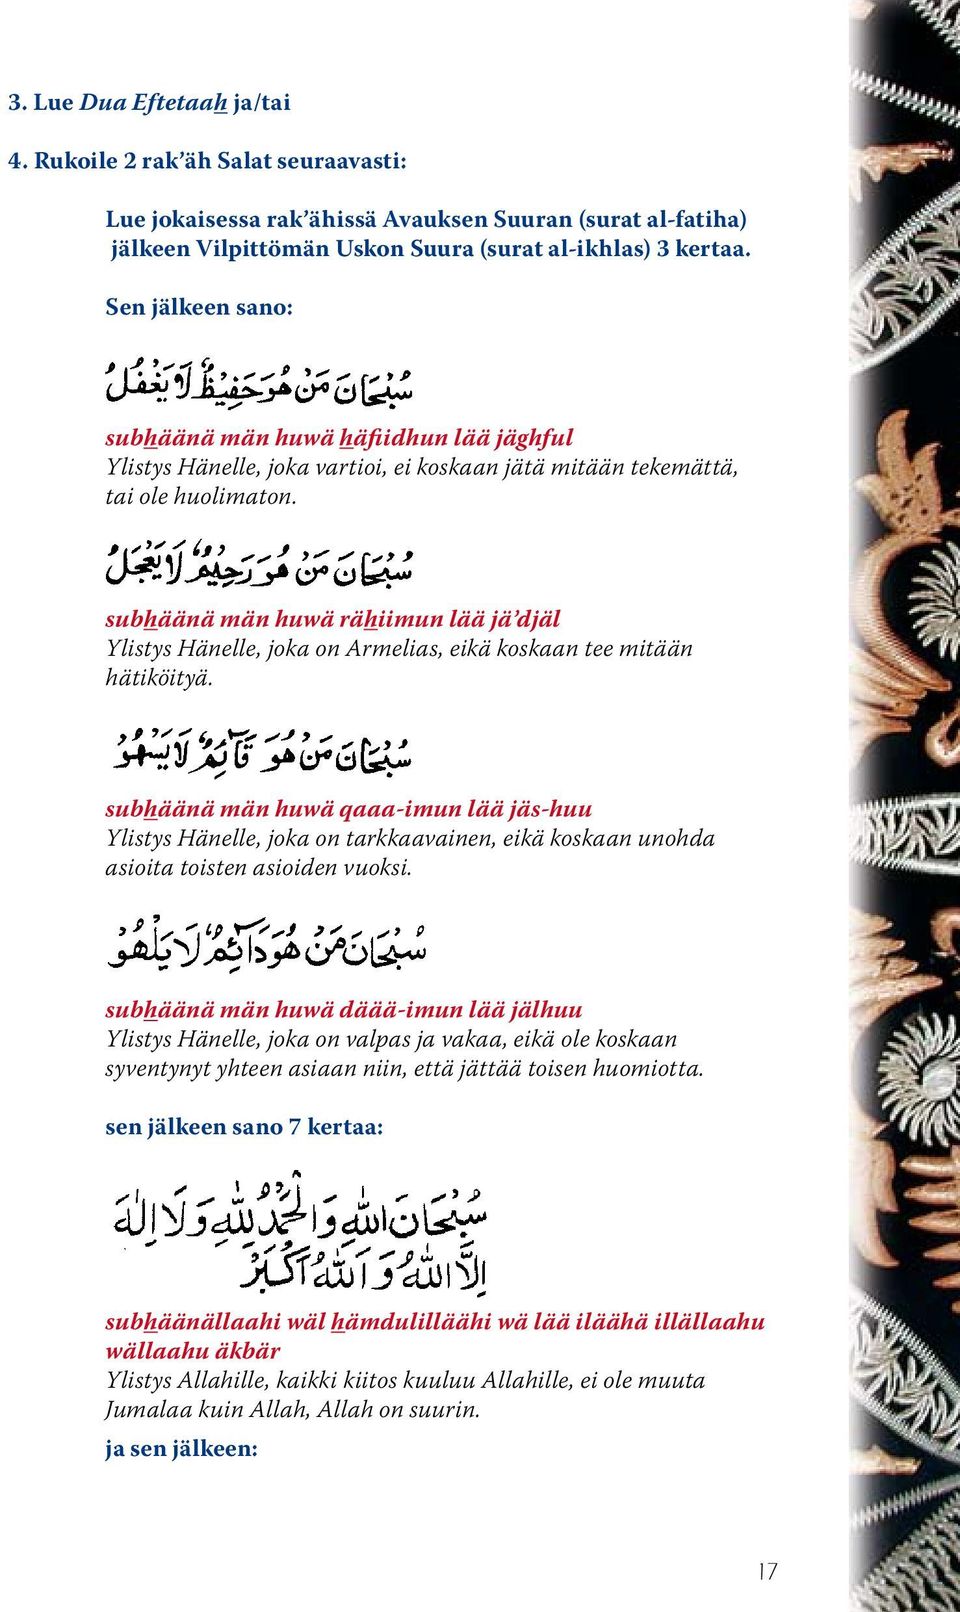 3. Lue Dua Eftetaah ja/tai
4. Rukoile 2 rak’äh Salat seuraavasti:
Lue jokaisessa rak’ähissä Avauksen Suuran (surat al-fatiha)
jälkeen Vilpittömän Uskon Suura (surat al-ikhlas) 3 kertaa.
Sen jälkeen sano:
سُبْحَانَ مَنْ هُوَ حَفِيْظٌ لَا يَغْفُلُ
subhäänä män huwä häfiidhun lää jäghful
Ylistys Hänelle, joka vartioi, ei koskaan jätä mitään tekemättä,
tai ole huolimaton.
سُبْحَانَ مَنْ هُوَ رَحِيْمٌ لَا يَعْجَلُ
subhäänä män huwä rähiimun lää jä’djäl
Ylistys Hänelle, joka on Armelias, eikä koskaan tee mitään
hätiköityä.
سُبْحَانَ مَنْ هُوَ قَآئِمٌ لَا يَسْهُوْ
subhäänä män huwä qaaa-imun lää jäs-huu
Ylistys Hänelle, joka on tarkkaavainen, eikä koskaan unohda
asioita toisten asioiden vuoksi.
سُبْحَانَ مَنْ هُوَ دَآئِمٌ لَا يَلْهُوْ
subhäänä män huwä däää-imun lää jälhuu
Ylistys Hänelle, joka on valpas ja vakaa, eikä ole koskaan
syventynyt yhteen asiaan niin, että jättää toisen huomiotta.
sen jälkeen sano 7 kertaa:
سُبْحَانَ اللهِ وَالْحَمْدُ لِلّٰهِ وَلَا اِلٰهَ
اِلَّا اللهُ وَ اَللهُ اَكْبَرْ
subhäänällaahi wäl hämdulilläähi wä lää iläähä illällaahu
wällaahu äkbär
Ylistys Allahille, kaikki kiitos kuuluu Allahille, ei ole muuta
Jumalaa kuin Allah, Allah on suurin.
ja sen jälkeen:
17